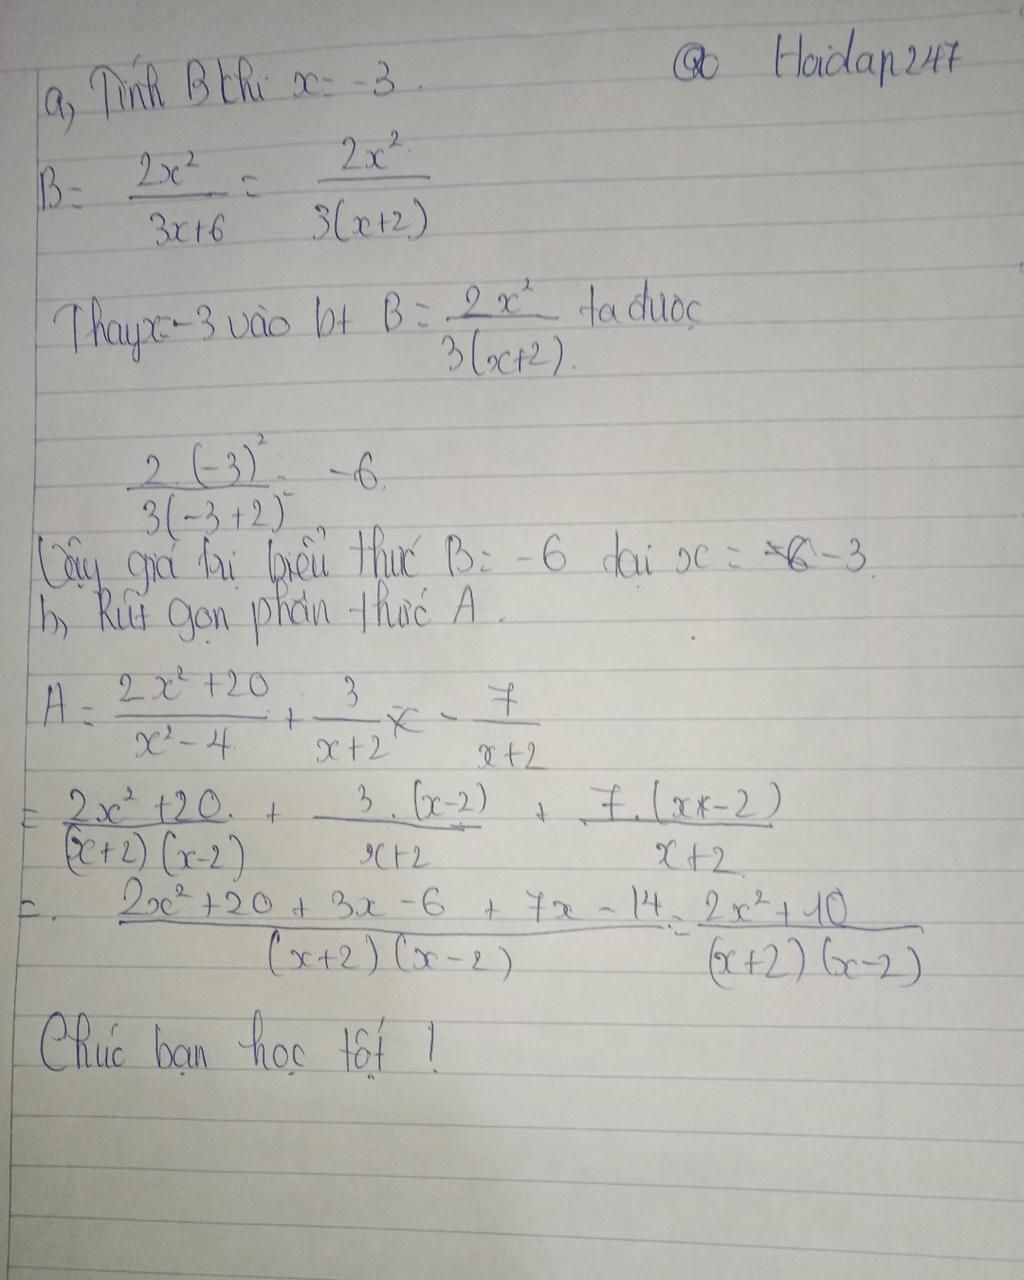 @ Hoidap247
a, Tính B khi x = -3.
B = 2x²/3x+6 = 2x²/3(x+2)
Thay x=-3 vào bt B = 2x²/3(x+2). ta được
2.(-3)²/3(-3+2) = -6.
Vậy giá trị biểu thức B = -6 tại x = -3.
b, Rút gọn phân thức A.
A = 2x²+20/x²-4 + 3/x+2 - 7/x+2
= 2x²+20/(x+2)(x-2) + 3.(x-2)/x+2 + 7.(x-2)/x+2
= 2x²+20+3x-6+7x-14/(x+2)(x-2) = 2x²+10/(x+2)(x-2)
Chúc bạn học tốt !